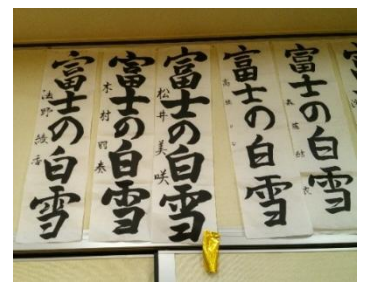 富士の白雪
富士の白雪
富士の白雪
松井美咲
富士の白雪
木村
富士の白雪